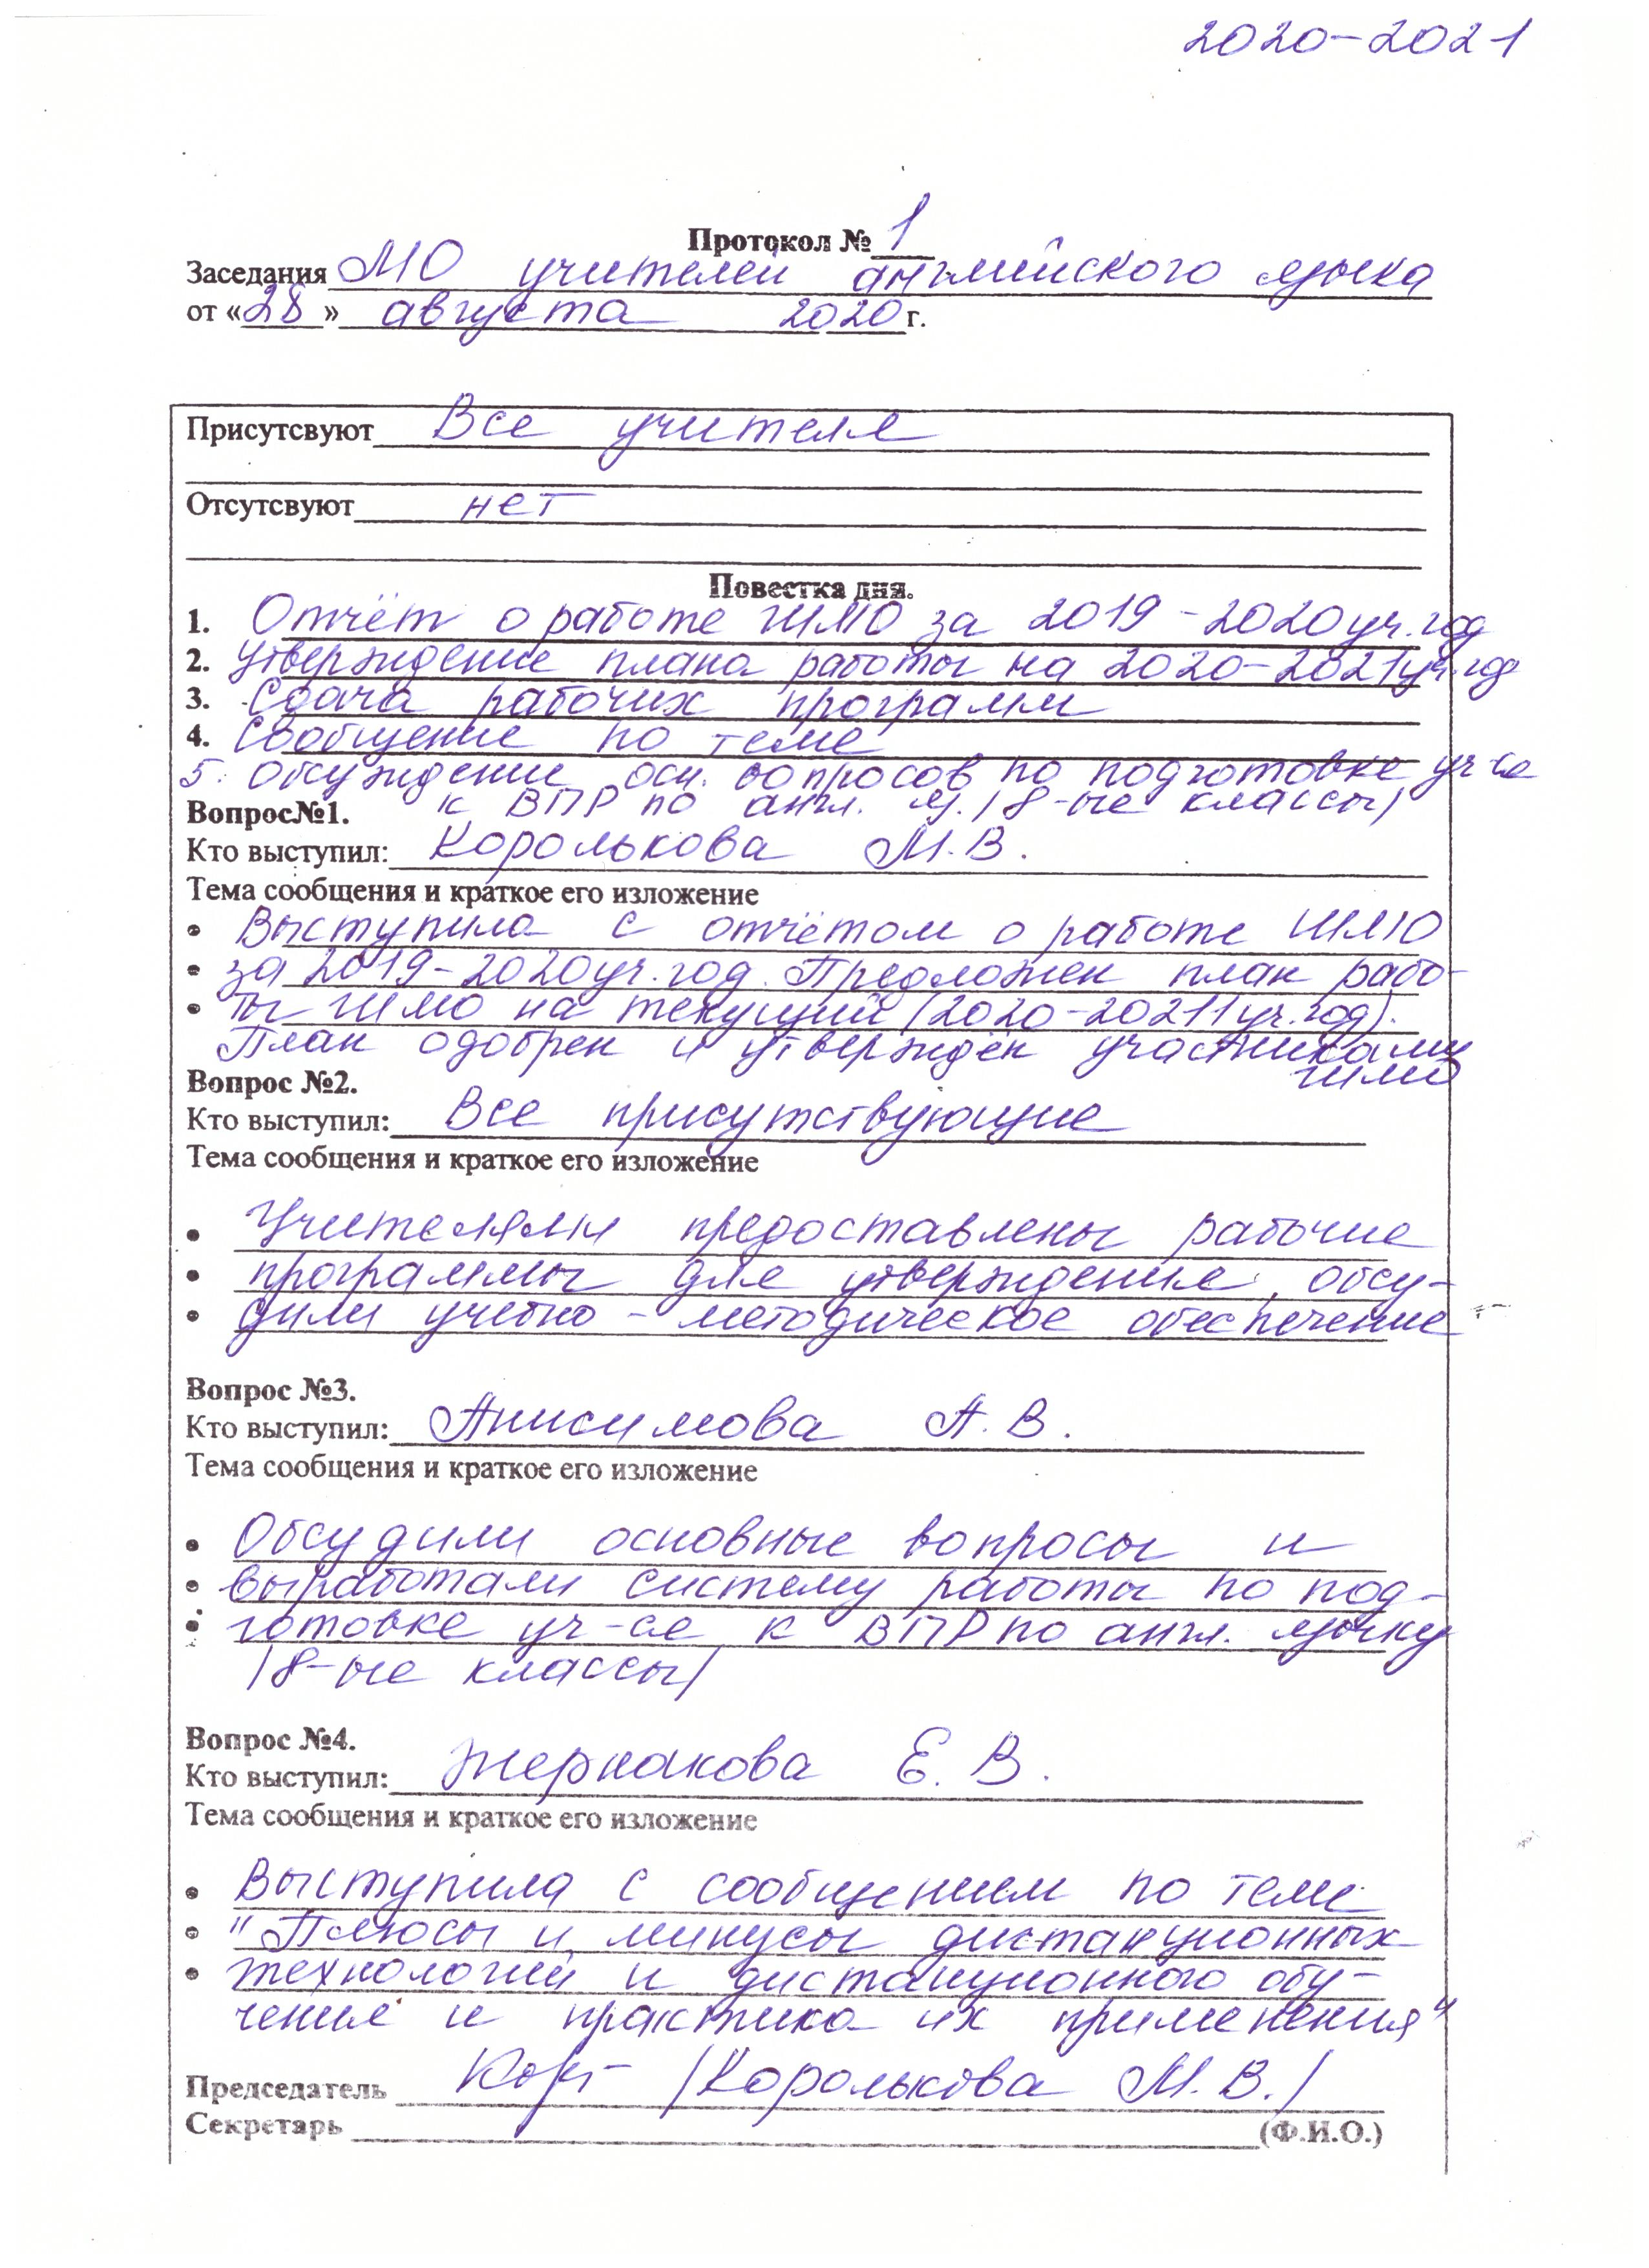 2020-2021
Протокол № 1
Заседания МО учителей английского языка
от «28» августа 2020 г.
Присутсвуют Все учителя
Отсутсвуют нет
Повестка дня.
1. Отчёт о работе ШМО за 2019-2020 уч. год
2. Утверждение плана работы на 2020-2021 уч. год
3. Сдача рабочих программ
4. Сообщение по теме
5. Обсуждение осн. вопросов по подготовке уч-ся
к ВПР по англ. я. /8-ые классы/
Вопрос№1.
Кто выступил: Королькова М.В.
Тема сообщения и краткое его изложение
• Выступила с отчётом о работе ШМО
• за 2019-2020 уч. год. Предложен план рабо-
• ты ШМО на текущий (2020-2021 уч. год).
План одобрен и утверждён участниками
ШМО
Вопрос №2.
Кто выступил: Все присутствующие
Тема сообщения и краткое его изложение
• Учителями предоставлены рабочие
• программы для утверждения, обсу-
• дили учебно-методическое обеспечение
Вопрос №3.
Кто выступил: Анисимова А.В.
Тема сообщения и краткое его изложение
• Обсудили основные вопросы и
• выработали систему работы по под-
• готовке уч-ся к ВПР по англ. языку
/8-ые классы/
Вопрос №4.
Кто выступил: Жернакова Е.В.
Тема сообщения и краткое его изложение
• Выступила с сообщением по теме
• "Плюсы и минусы дистанционных
• технологий и дистанционного обу-
чения и практика их применения"
Председатель /Королькова М.В./
Секретарь (Ф.И.О.)